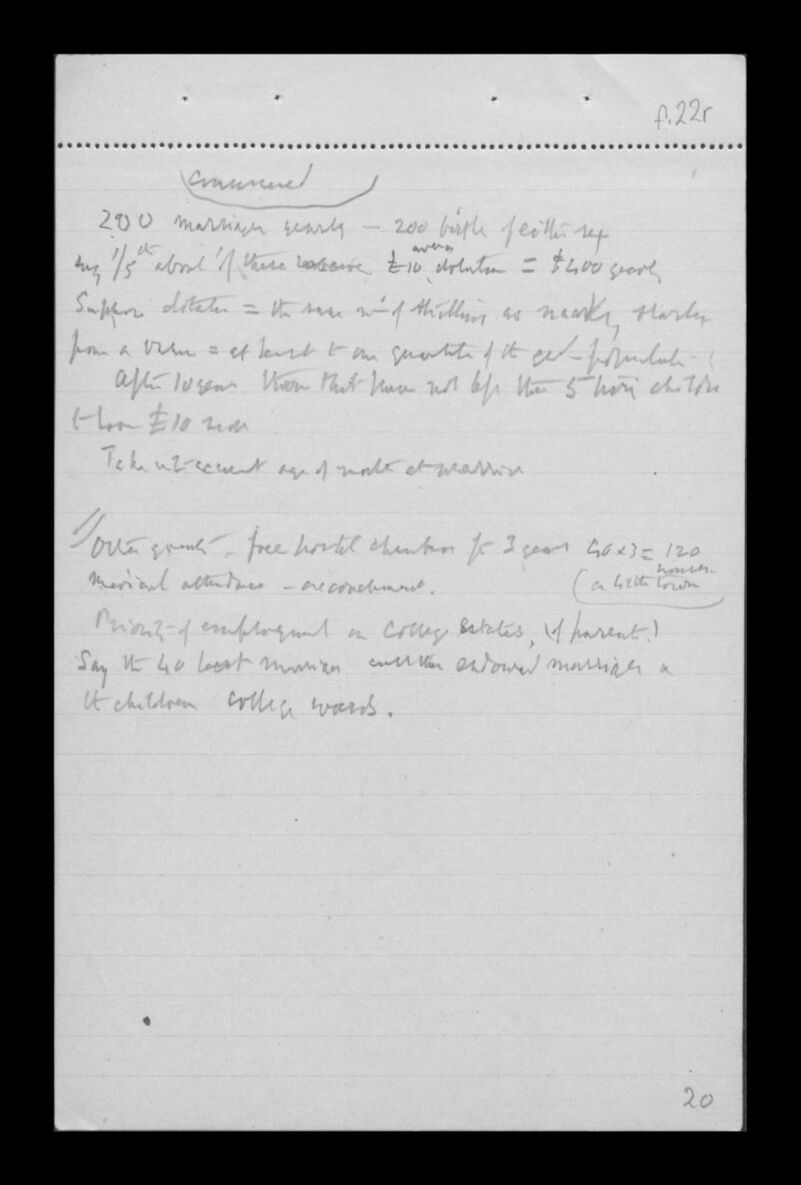 f.22r
200 marriages yearly – 200 births of either sex
say 1/5th about of these receive £10 average dotation = £400 yearly
Suppose dotation = the same no of shillings as marks, starting
from a = at least to one quartile of the genl population
After 10 years those that have not less than 5 living children
to have £10 more
Take into account age of mother at marriage
Other grants – free hostel chambers for 3 years 40 x 3 = 120
houses
Medical attendance – accouchement. (a little town
Priority of employment on College estates, (of parents)
Say the 40 best marriages call them endowed marriages &
the children College wards.
20